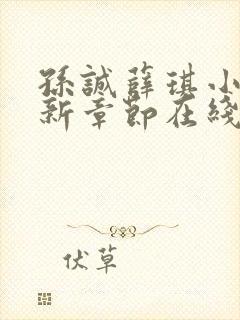 孫誠薛琪小
新章節在綫
伏草